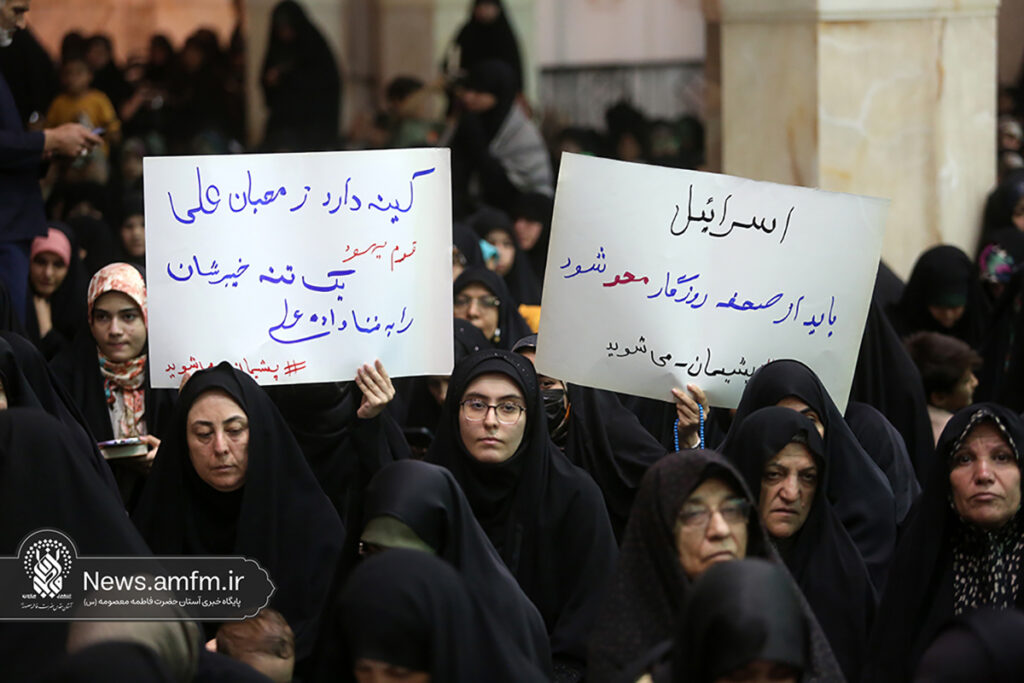 کینه دارد ز محبان علی
قوم یهود
یک تنه خیبرشان
را به فنا داده علی
#پشیمان_می‌شوید
اسرائیل
باید از صفحه روزگار محو شود
#پشیمان-می‌شوید
News.amfm.ir
پایگاه خبری آستان حضرت فاطمه معصومه (س)